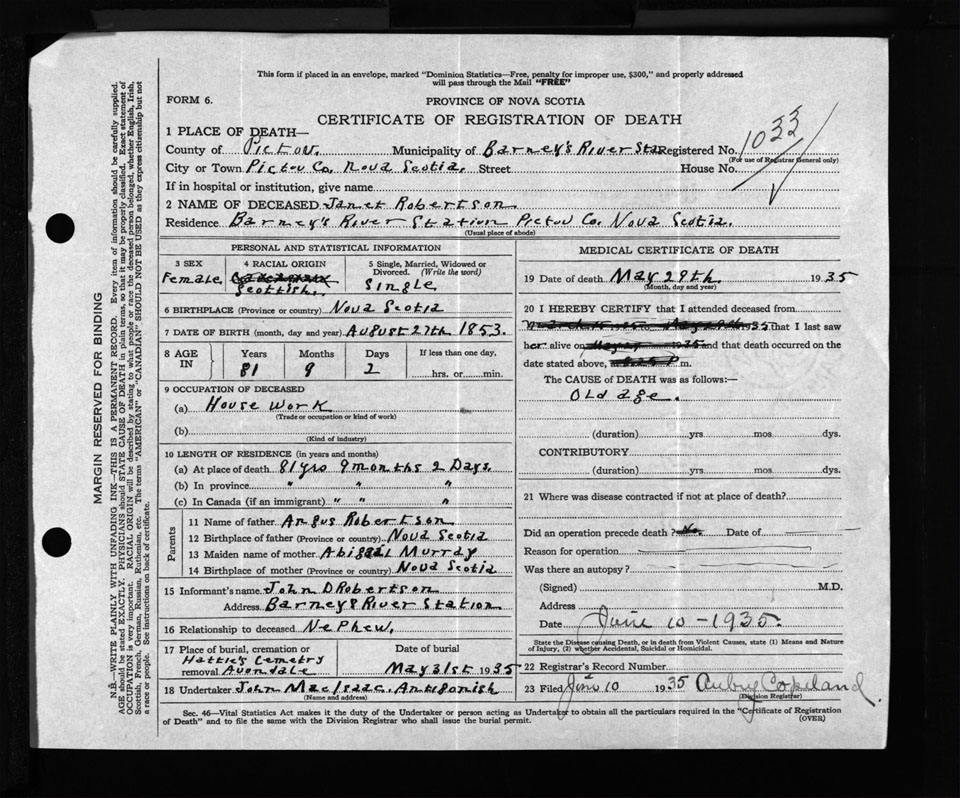 This form if placed in an envelope, marked "Dominion Statistics—Free, penalty for improper use, $300," and properly addressed
will pass through the Mail "FREE"
FORM 6.
PROVINCE OF NOVA SCOTIA
CERTIFICATE OF REGISTRATION OF DEATH
1033
1 PLACE OF DEATH—
County of Pictou. Municipality of Barney's River Sta Registered No.
(For use of Registrar General only)
City or Town Pictou Co. Nova Scotia. Street House No.
If in hospital or institution, give name
2 NAME OF DECEASED Janet Robertson
Residence Barney's River Station Pictou Co. Nova Scotia.
(Usual place of abode)
PERSONAL AND STATISTICAL INFORMATION
3 SEX 4 RACIAL ORIGIN 5 Single, Married, Widowed or
Divorced. (Write the word)
Female Scottish. Single
6 BIRTHPLACE (Province or country) Nova Scotia
7 DATE OF BIRTH (month, day and year) August 27th 1853.
8 AGE IN Years Months Days If less than one day,
81 9 2 hrs. or min.
9 OCCUPATION OF DECEASED
(a) House Work
(Trade or occupation or kind of work)
(b)
(Kind of industry)
10 LENGTH OF RESIDENCE (in years and months)
(a) At place of death 81 yrs 9 months 2 Days.
(b) In province " " "
(c) In Canada (if an immigrant) " " "
Parents
11 Name of father Angus Robertson
12 Birthplace of father (Province or country) Nova Scotia
13 Maiden name of mother Abigail Murray
14 Birthplace of mother (Province or country) Nova Scotia
15 Informant's name John D Robertson
Address Barney's River Station
16 Relationship to deceased Nephew.
17 Place of burial, cremation or removal Date of burial
Hattie's Cemetry
Avondale May 31st 1935
18 Undertaker John MacIsaac. Antigonish
(Name and address)
MEDICAL CERTIFICATE OF DEATH
19 Date of death May 29th. 1935
(Month, day and year)
20 I HEREBY CERTIFY that I attended deceased from
March 1935 to May 29th 1935 that I last saw
her alive on May 29 1935 and that death occurred on the
date stated above, at m.
The CAUSE of DEATH was as follows:—
Old age.
(duration) yrs mos dys.
CONTRIBUTORY
(duration) yrs mos dys.
21 Where was disease contracted if not at place of death?
Did an operation precede death? No. Date of
Reason for operation
Was there an autopsy?
(Signed) M.D.
Address
Date June 10 - 1935.
State the Disease causing Death, or in death from Violent Causes, state (1) Means and Nature
of Injury, (2) whether Accidental, Suicidal or Homicidal.
22 Registrar's Record Number
23 Filed June 10 1935 Aubry Copeland.
(Division Registrar)
Sec. 46—Vital Statistics Act makes it the duty of the Undertaker or person acting as Undertaker to obtain all the particulars required in the "Certificate of Registration
of Death" and to file the same with the Division Registrar who shall issue the burial permit. (OVER)
MARGIN RESERVED FOR BINDING
N.B.—WRITE PLAINLY WITH UNFADING INK—THIS IS A PERMANENT RECORD. Every item of information should be carefully supplied.
AGE should be stated EXACTLY. PHYSICIANS should STATE CAUSE OF DEATH in plain terms, so that it may be properly classified. Exact statement of
OCCUPATION is very important. RACIAL ORIGIN will be described by stating to what people or race the deceased person belonged, whether English, Irish,
Scottish, French, German, Russian, Ruthenian, etc. The terms "AMERICAN" or "CANADIAN" SHOULD NOT BE USED as they express citizenship but not
a race or people. See instructions on back of certificate.